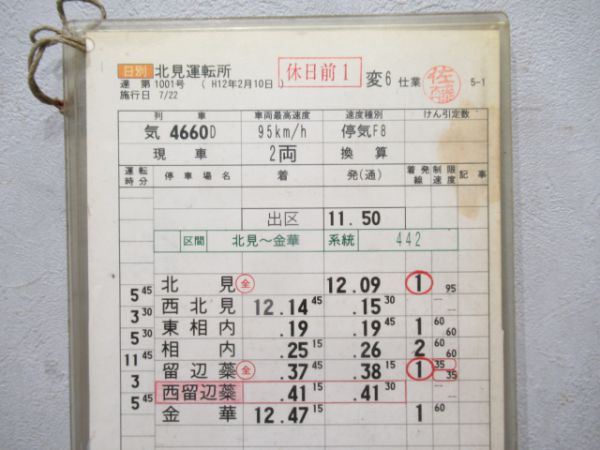 日別 北見運転所 休日前1 変6 仕業 佐
達 第1001号 ( H12年2月10日 ) 5-1
施行日 7/22
列車 車両最高速度 速度種別 けん引定数
気 4660D 95km/h 停気F8
現車 2両 換算
運転時分 停車場名 着 発(通) 着発線 制限速度 記事
出区 11.50
区間 北見～金華 系統 442
北見 全 12.09 1 95
5 45
西北見 12.14 45 .15 30
3 30
東相内 .19 .19 45 1 60 60
5 30
相内 .25 15 .26 2 60 60
11 45
留辺蘂 全 .37 45 .38 15 1 35 35
3
西留辺蘂 .41 15 .41 30
5 45
金華 12.47 15 1 60